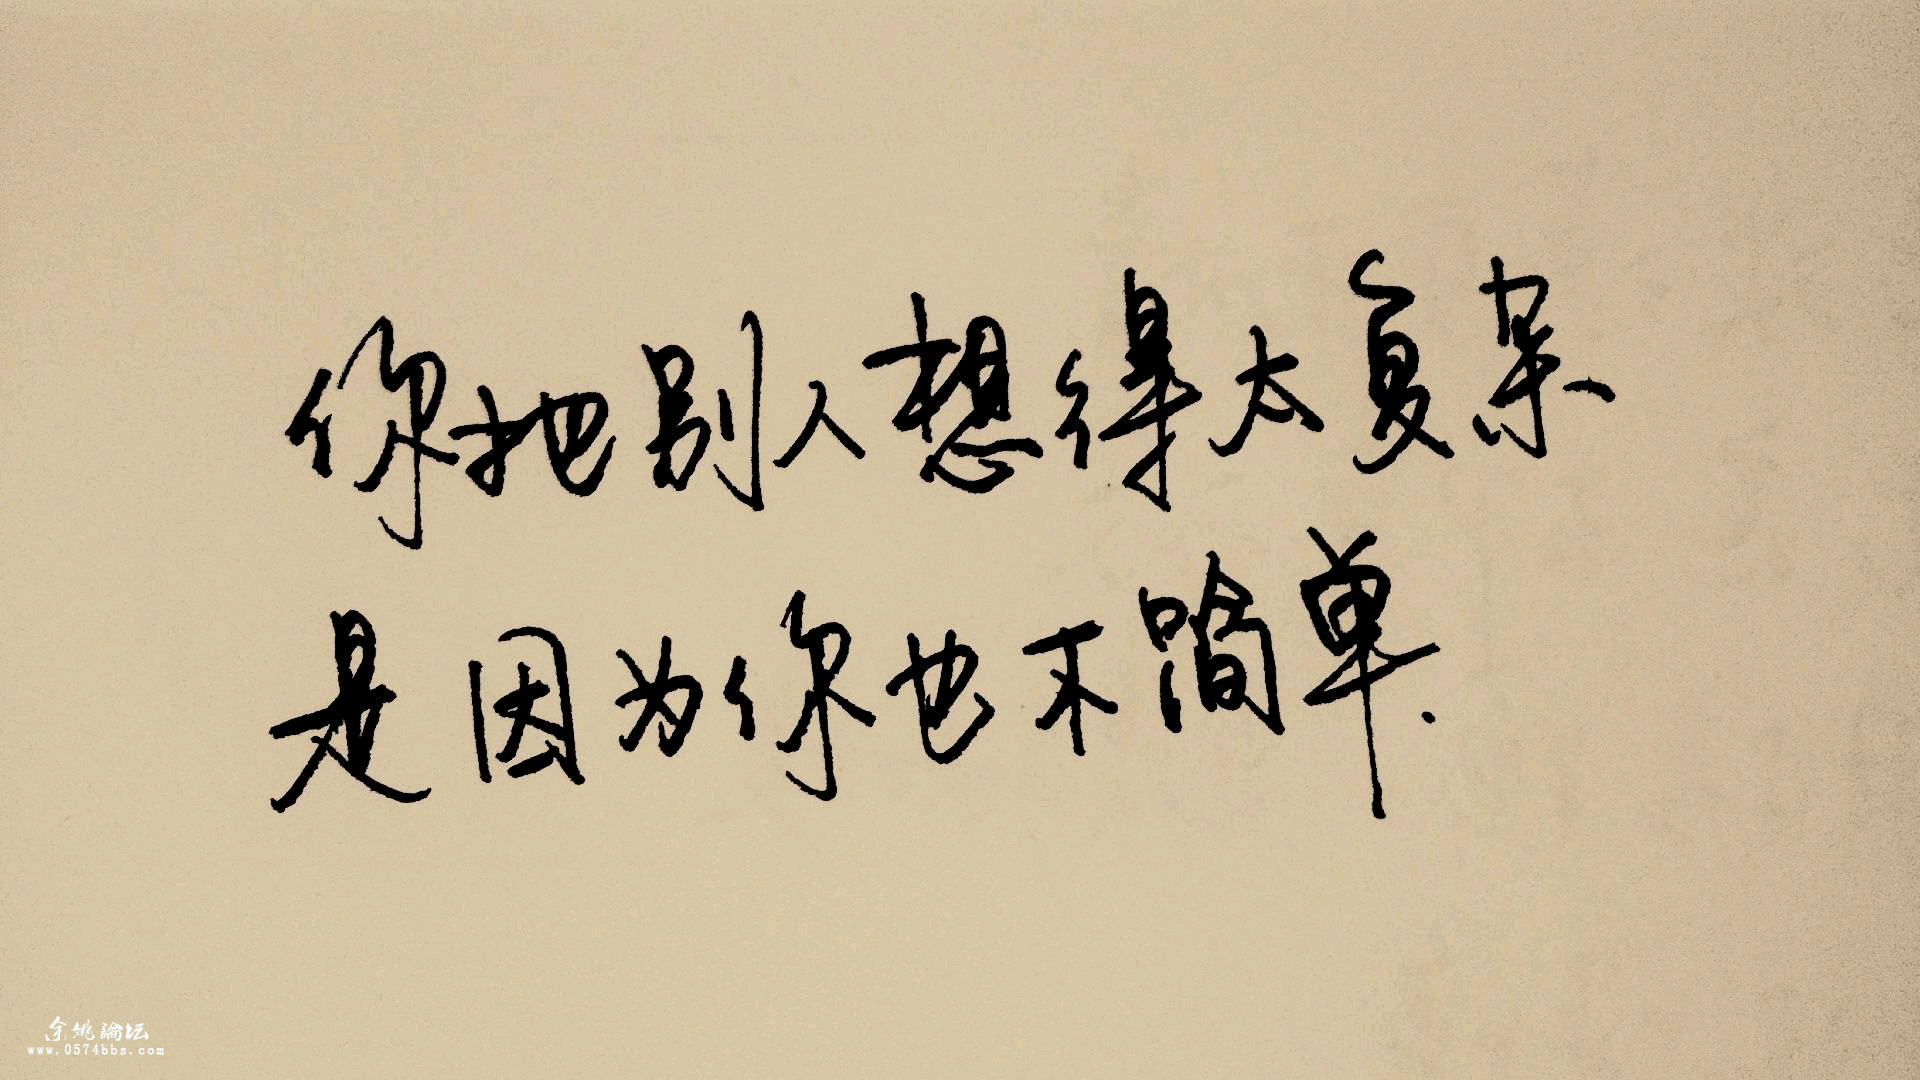 你把别人想得太复杂
是因为你也不简单.
余姚論坛
www.0574bbs.com